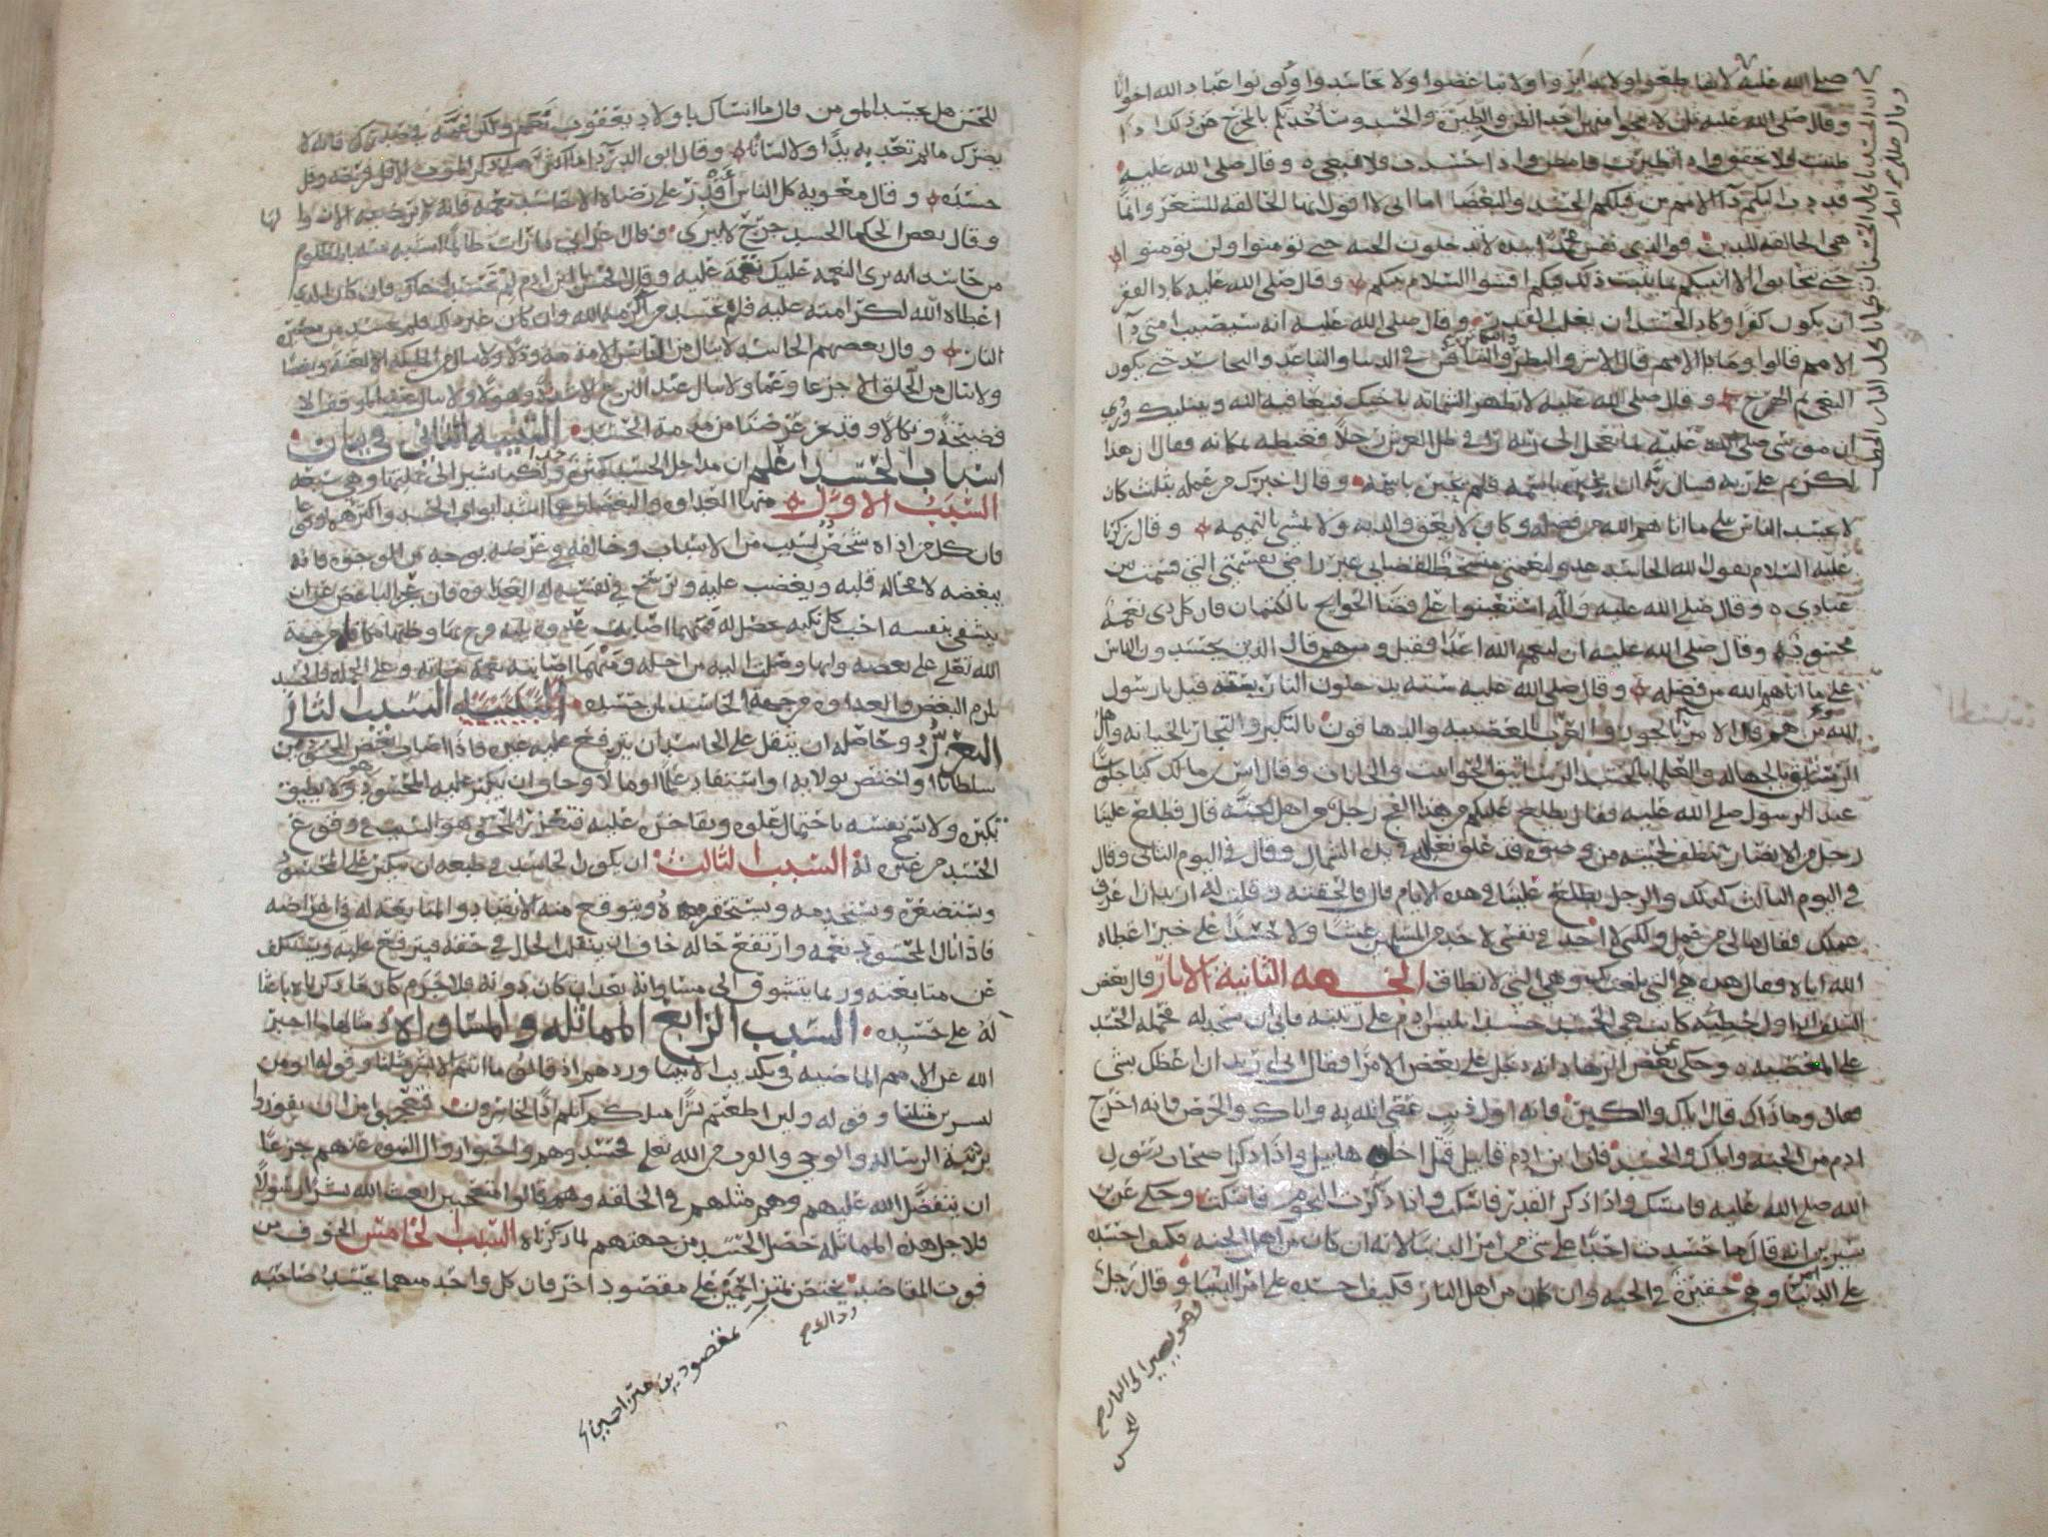 صلى الله عليه لا تقاطعوا ولا تدابروا ولا تباغضوا ولا تحاسدوا وكونوا عباد الله اخوانا
وقال صلى الله عليه ثلاث لا ينجو منهن احد الظن والطيره والحسد وسأحدثكم بالمخرج من ذلك اذا
ظننت فلا تحقق واذا تطيرت فامض واذا حسدت فلا تبغ ه وقال صلى الله عليه
قد دب اليكم دآ الامم من قبلكم الحسد والبغضا اما انى لا اقول انها الحالقه للشعر وانما
هى الحالقه للدين فوالذى نفس محمد بيده لا تدخلون الجنه حتى تؤمنوا ولن تؤمنوا
حتى تحابوا الا انبيكم بما يثبت ذلك فيكم افشوا السلام بينكم وقال صلى الله عليه كاد الفقر
ان يكون كفرا وكاد الحسد ان يغلب القدر وقال صلى الله عليه انه سيصيب امتى دآ
الامم قالوا وما دا الامم قال الاشر والبطر والتنافس فى الدنيا والتباعد والتحاسد حتى يكون
البغى ثم الهرج وقال صلى الله عليه لا تظهر الشماته باخيك فيعافيه الله ويبتليك وروي
ان موسى صلى الله عليه لما تعجل الى ربه راى فى ظل العرش رجلا فغبطه بمكانه فقال ان هذا
لكريم على ربه فسال ربه ان يخبره باسمه فلم يخبره باسمه وقال اخبرك من عمله بثلث كان
لا يحسد الناس على ما اتاهم الله من فضله وكان لا يعق والديه ولا يمشى بالنميمه وقال زكريا
عليه السلام يقول الله الحاسد عدو لنعمتى متسخط لقضاى غير راض بقسمتى التى قسمت بين
عبادى ه وقال صلى الله عليه وآله استعينوا على قضآ الحوايج بالكتمان فان كل ذى نعمة
محسود وقال صلى الله عليه ان لنعم الله اعدآ فقيل ومن هم قال الذين يحسدون الناس
على ما اتاهم الله من فضله وقال صلى الله عليه سته يدخلون النار بسته قيل يا رسول
الله من هم قال الامرآ بالجور والعرب بالعصبيه والدهاقون بالتكبر والتجار بالخيانه واهل
الرستاق بالجهاله والعلما بالحسد وقال انس بن مالك كنا جلوسا
عند الرسول صلى الله عليه فقال يطلع عليكم من هذا الفج رجل من اهل الجنه قال فطلع علينا
رجل من الانصار تنطف لحيته من وضوه قد علق نعليه فى يده الشمال وقال فى اليوم الثانى وقال
فى اليوم الثالث كذلك والرجل يطلع علينا فى هذه الايام قال فالحقته وقلت له اريد ان اعرف
عملك فقال مالى من عمل ولكنى لا اجد فى نفسى لاحد من المسلمين غشا ولا حسدا على خير اعطاه
الله اياه فقال هذه هى التى بلغت بك وهى التى لا تطاق الجهه الثانية الاثار قال بعض
السلف ان اول خطيه كانت هى الحسد حسد ابليس ادم على رتبته فابى ان يسجد له فحمله الحسد
على المعصيه ه وحكى عن بعض الزهاد انه دخل على بعض الامرآ فقال انى اريد ان اعظك بشى
فقال وما ذاك قال اياك والكبر فانه اول ذنب عصى الله به واياك والحرص فانه اخرج
ادم من الجنه واياك والحسد فان ابن ادم قابيل قتل اخاه هابيل واذا ذكر اصحاب رسول
الله صلى الله عليه فامسك واذا ذكر القدر فاسكت واذا ذكرت النجوم فاسكت وحكى عن بن
سيرين انه قال ما حسدت احدا على شى من امر الدنيا لانه ان كان من اهل الجنه فكيف احسده
على امر الدنيا وهى حقيرة فى الجنه وان كان من اهل النار فكيف احسده على امر الدنيا وقال رجل
وهو يصير الى النار صح
للحسن
للحسن هل يحسد المومن قال ما انساك يا ولاد يعقوب نعم ولكن غمه فى صدرك فانه لا
يضرك ما لم تعد به يدا ولا لسانا وقال ابو الدردآ ما اكثر عبد ذكر الموت الا قل فرحه وقل
حسده وقال معويه كل الناس اقدر على رضاه الا حاسد نعمه فانه لا يرضيه الا زوالها
وقال بعض الحكما الحسد جرح لا يبرى وقال اعرابى ما رايت ظالما اشبه بمظلوم
من حاسد انه يرى النعمه عليك نقمة عليه وقال الحسن يا ابن ادم لم تحسد اخاك فان كان الذى
اعطاه الله لكرامته عليه فلم تحسد من اكرمه الله وان كان غير ذلك فلم تحسد من مصيره
النار وقال بعضهم الحاسد لا ينال من المجالس الا مذمه وذلا ولا ينال من الملئكه الا لعنه وبغضا
ولا ينال من الخلق الا جزعا وغما ولا ينال عند النزع الا شدة وهولا ولا ينال عند الموقف الا
فضيحة ونكالا وقد عرضنا من مذمة الحسد التنبيه الثانى فى بيان
اسباب الحسد اعلم ان مداخل الحسد كثيرة جدا ولكنا نشير الى جليتها وهى سبعه
السبب الاول منها العداوه والبغضا وهما اشد ابواب الحسد
فان كل من اذاه شخص بسبب من الاسباب وخالفه فى غرضه بوجه من الوجوه فانه
يبغضه لا محاله قلبه ويغضب عليه ويرسخ فى نفسه له العداوه فان عجز الباغض عن ان
يتشفى بنفسه احب كل نكبه تحصل له فمهما اصابت عدوه بليه فرح بها وظنها مكافاه من جهة
الله تعالى على بغضه وانها وصلت اليه من اجله ومهما اصابته نعمه سآته وعلى الجمله فالحسد
يلزم البغض والعداوه من جهة الحاسد لمن حسده السبب الثانى
التعزز وحاصله ان يثقل على الحاسد ان يترفع عليه غيره فاذا اصاب بعض المحسودين
سلطانا واختص بولايه واستفاد علما او مالا وخاف ان يتكبر عليه المحسود وهو لا يطيق
تكبره ولا تسمح نفسه باحتمال علوه وتفاخره عليه فتعززه المحقق هو السبب فى وقوع
الحسد من غيره له السبب الثالث ان يكون الحاسد فى طبعه ان يتكبر على المحسود
ويستصغره ويستخدمه ويستحقره ويتوقع منه الانقياد والمتابعه له فى اغراضه
فاذا نال المحسود نعمه وارتفع حاله خاف ان ينقلب الحال فى حقه فيترفع عليه ويستنكف
عن متابعته وربما يتشوق الى مساواته بعد ان كان دونه فلا جرم كان ما ذكرناه باعثا
له على حسده السبب الرابع المماثله والمساواه ومثالها ما اخبر
الله عن الامم الماضيه فى تكذيب الانبيا وردهم اذ قالوا ما انتم الا بشر مثلنا وقوله انومن
لبشرين مثلنا وقوله ولين اطعتم بشرا مثلكم انكم اذا لخاسرون فتعجبوا من ان يفوزوا
برتبة الرساله والوحى والقرب من الله تعلى فحسدوهم واحبوا زوال النبوه عنهم جزعا
ان يتفضل الله عليهم وهم مثلهم فى الخلقه وهم قالوا متعجبين ابعث الله بشرا رسولا
فلاجل هذه المماثله حصل الحسد من جهتهم لما ذكرناه السبب الخامس الخوف من
فوت المقاصد يختص بمتزاحمين على مقصود اخر فان كل واحد منهما يحسد صاحبه
مقصود بن متزاحمين